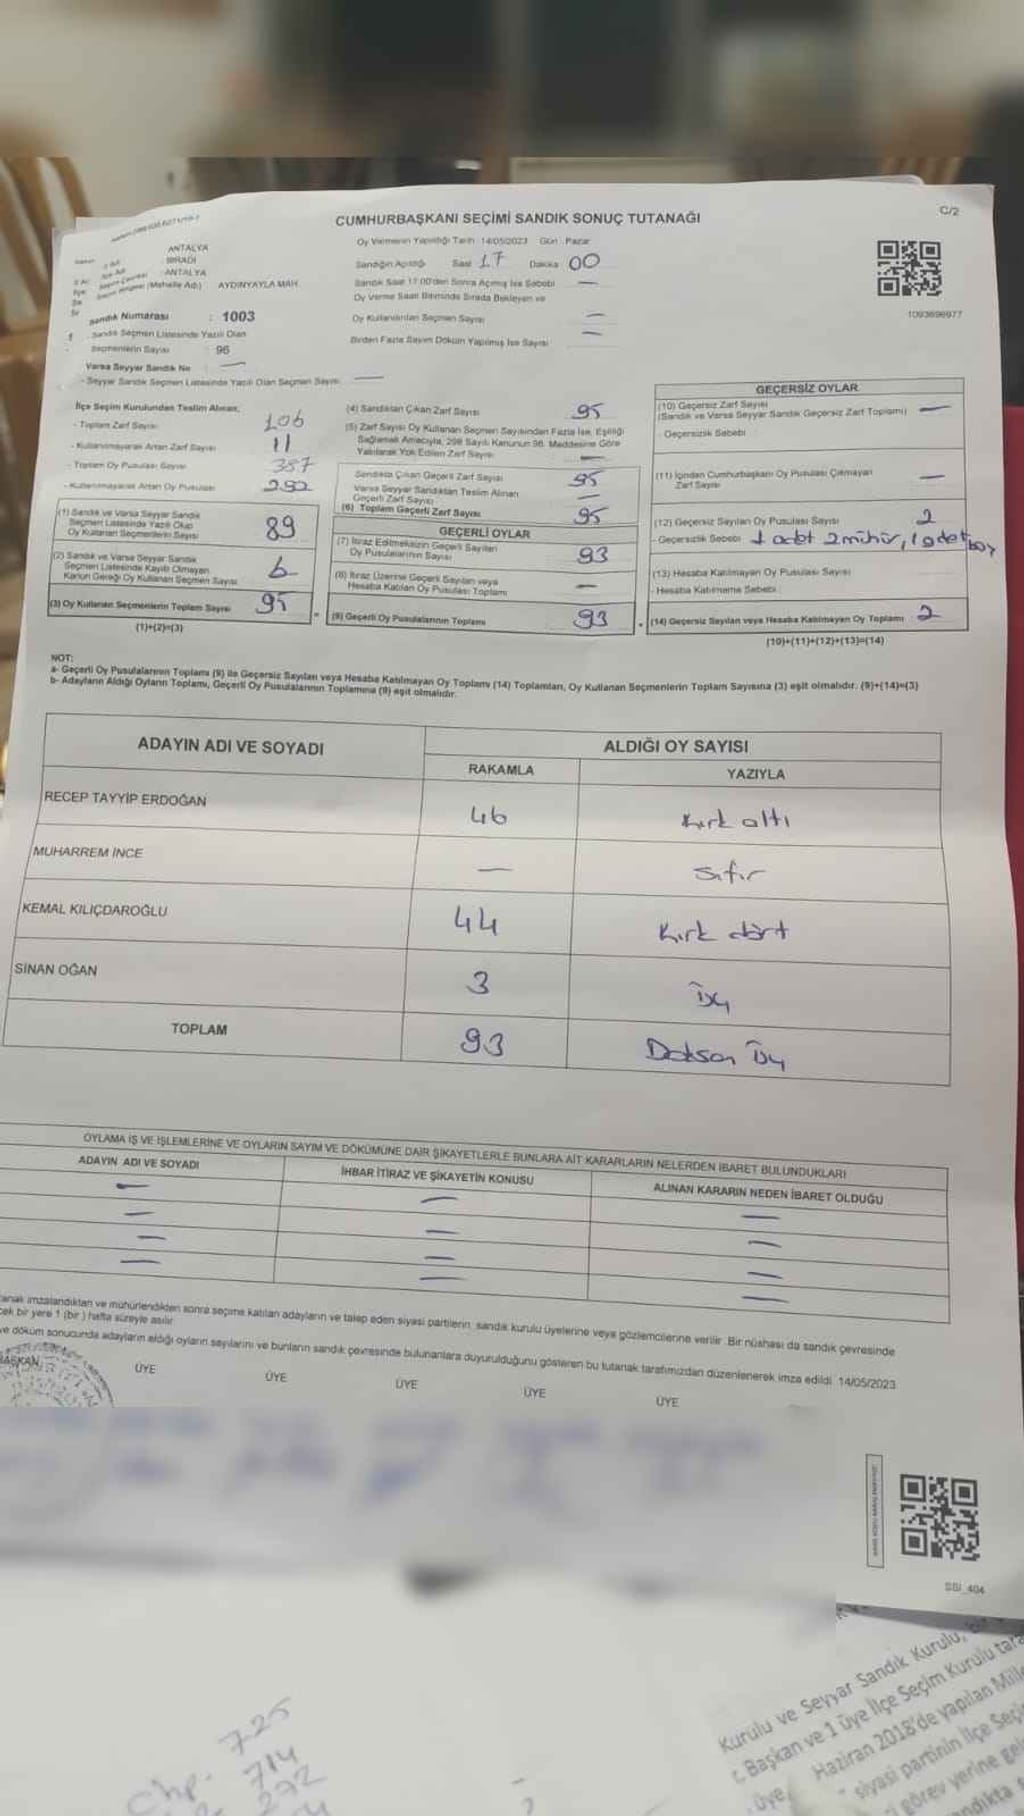 C/2
CUMHURBAŞKANI SEÇİMİ SANDIK SONUÇ TUTANAĞI
Oy Vermenin Yapıldığı Tarih : 14/05/2023 Gün : Pazar
ANTALYA
ANTALYA
AYDINYAYLA MAH.
Sandığın Açıldığı Saat 17 Dakika 00
Sandık Saat 17:00'den Sonra Açılmış İse Sebebi —
Oy Verme Saati Bitiminde Sırada Bekleyen ve
Oy Kullandırılan Seçmen Sayısı —
Birden Fazla Sayım Döküm Yapılmış İse Sayısı —
1093696977
Sandık Numarası : 1003
Sandık Seçmen Listesinde Yazılı Olan
Seçmenlerin Sayısı : 96
Varsa Seyyar Sandık No —
- Seyyar Sandık Seçmen Listesinde Yazılı Olan Seçmen Sayısı —
İlçe Seçim Kurulundan Teslim Alınan;
- Toplam Zarf Sayısı 106
- Kullanılmayarak Artan Zarf Sayısı 11
- Toplam Oy Pusulası Sayısı 387
- Kullanılmayarak Artan Oy Pusulası 292
(1) Sandık ve Varsa Seyyar Sandık
Seçmen Listesinde Yazılı Olup
Oy Kullanan Seçmenlerin Sayısı 89
(2) Sandık ve Varsa Seyyar Sandık
Seçmen Listesinde Kayıtlı Olmayan
Kanun Gereği Oy Kullanan Seçmen Sayısı 6
(3) Oy Kullanan Seçmenlerin Toplam Sayısı 95
(1)+(2)=(3)
(4) Sandıktan Çıkan Zarf Sayısı 95
(5) Zarf Sayısı Oy Kullanan Seçmen Sayısından Fazla İse, Eşitliği
Sağlamak Amacıyla, 298 Sayılı Kanunun 98. Maddesine Göre
Yakılarak Yok Edilen Zarf Sayısı —
Sandıkta Çıkan Geçerli Zarf Sayısı 95
Varsa Seyyar Sandıktan Teslim Alınan
Geçerli Zarf Sayısı —
(6) Toplam Geçerli Zarf Sayısı 95
GEÇERLİ OYLAR
(7) İtiraz Edilmeksizin Geçerli Sayılan
Oy Pusulalarının Sayısı 93
(8) İtiraz Üzerine Geçerli Sayılan veya
Hesaba Katılan Oy Pusulası Toplamı —
(9) Geçerli Oy Pusulalarının Toplamı 93
GEÇERSİZ OYLAR
(10) Geçersiz Zarf Sayısı
(Sandık ve Varsa Seyyar Sandık Geçersiz Zarf Toplamı) —
- Geçersizlik Sebebi
(11) İçinden Cumhurbaşkanı Oy Pusulası Çıkmayan
Zarf Sayısı —
(12) Geçersiz Sayılan Oy Pusulası Sayısı 2
- Geçersizlik Sebebi 1 adet 2 mühür, 1 adet boş
(13) Hesaba Katılmayan Oy Pusulası Sayısı
- Hesaba Katılmama Sebebi
(14) Geçersiz Sayılan veya Hesaba Katılmayan Oy Toplamı 2
(10)+(11)+(12)+(13)=(14)
NOT:
a- Geçerli Oy Pusulalarının Toplamı (9) ile Geçersiz Sayılan veya Hesaba Katılmayan Oy Toplamı (14) Toplamları, Oy Kullanan Seçmenlerin Toplam Sayısına (3) eşit olmalıdır. (9)+(14)=(3)
b- Adayların Aldığı Oyların Toplamı, Geçerli Oy Pusulalarının Toplamına (9) eşit olmalıdır.
ADAYIN ADI VE SOYADI ALDIĞI OY SAYISI
RAKAMLA YAZIYLA
RECEP TAYYİP ERDOĞAN 46 Kırk altı
MUHARREM İNCE — Sıfır
KEMAL KILIÇDAROĞLU 44 Kırk dört
SİNAN OĞAN 3 Üç
TOPLAM 93 Doksan üç
OYLAMA İŞ VE İŞLEMLERİNE VE OYLARIN SAYIM VE DÖKÜMÜNE DAİR ŞİKAYETLERLE BUNLARA AİT KARARLARIN NELERDEN İBARET BULUNDUKLARI
ADAYIN ADI VE SOYADI İHBAR İTİRAZ VE ŞİKAYETİN KONUSU ALINAN KARARIN NEDEN İBARET OLDUĞU
— — —
— — —
— — —
— — —
imzalandıktan ve mühürlendikten sonra seçime katılan adayların ve talep eden siyasi partilerin, sandık kurulu üyelerine veya gözlemcilerine verilir. Bir nüshası da sandık çevresinde
bir yere 1 (bir) hafta süreyle asılır.
ve döküm sonucunda adayların aldığı oyların sayılarını ve bunların sandık çevresinde bulunanlara duyurulduğunu gösteren bu tutanak tarafımızdan düzenlenerek imza edildi. 14/05/2023
BAŞKAN ÜYE ÜYE ÜYE ÜYE ÜYE
SSI_404
Kurulu ve Seyyar Sandık Kurulu,
Başkan ve 1 üye İlçe Seçim Kurulu
üye Haziran 2018'de yapılan
siyasi partinin İlçe
görev yerine
725
chp- 714
272